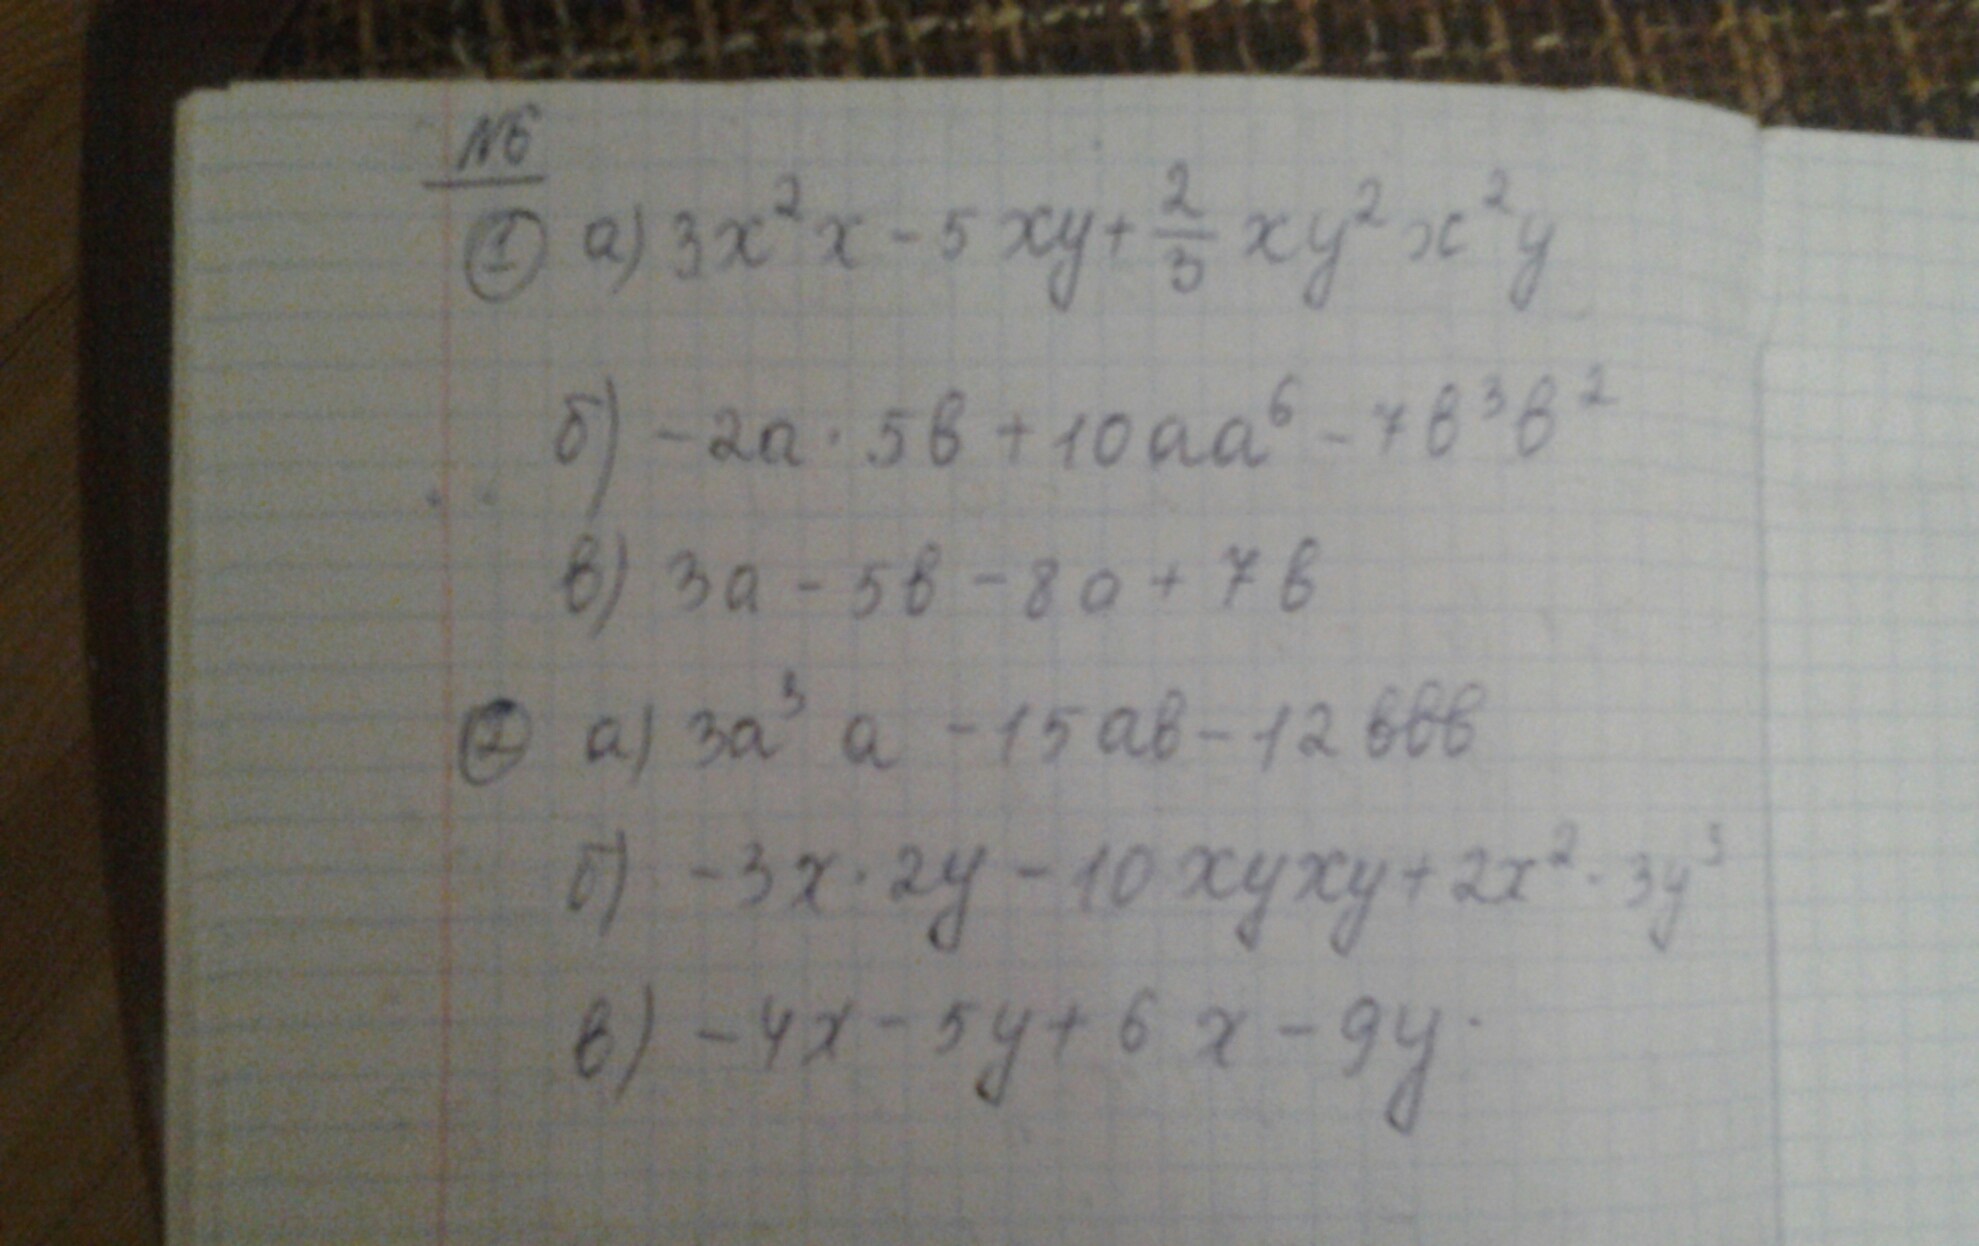 №6
① а) 3x²x - 5xy + 2/3 xy²x²y
б) -2a · 5в + 10aa⁶ - 7в³в²
в) 3a - 5в - 8a + 7в
② а) 3a³a - 15aв - 12ввв
б) -3x · 2y - 10xyxy + 2x² · 3y³
в) -4x - 5y + 6x - 9y.